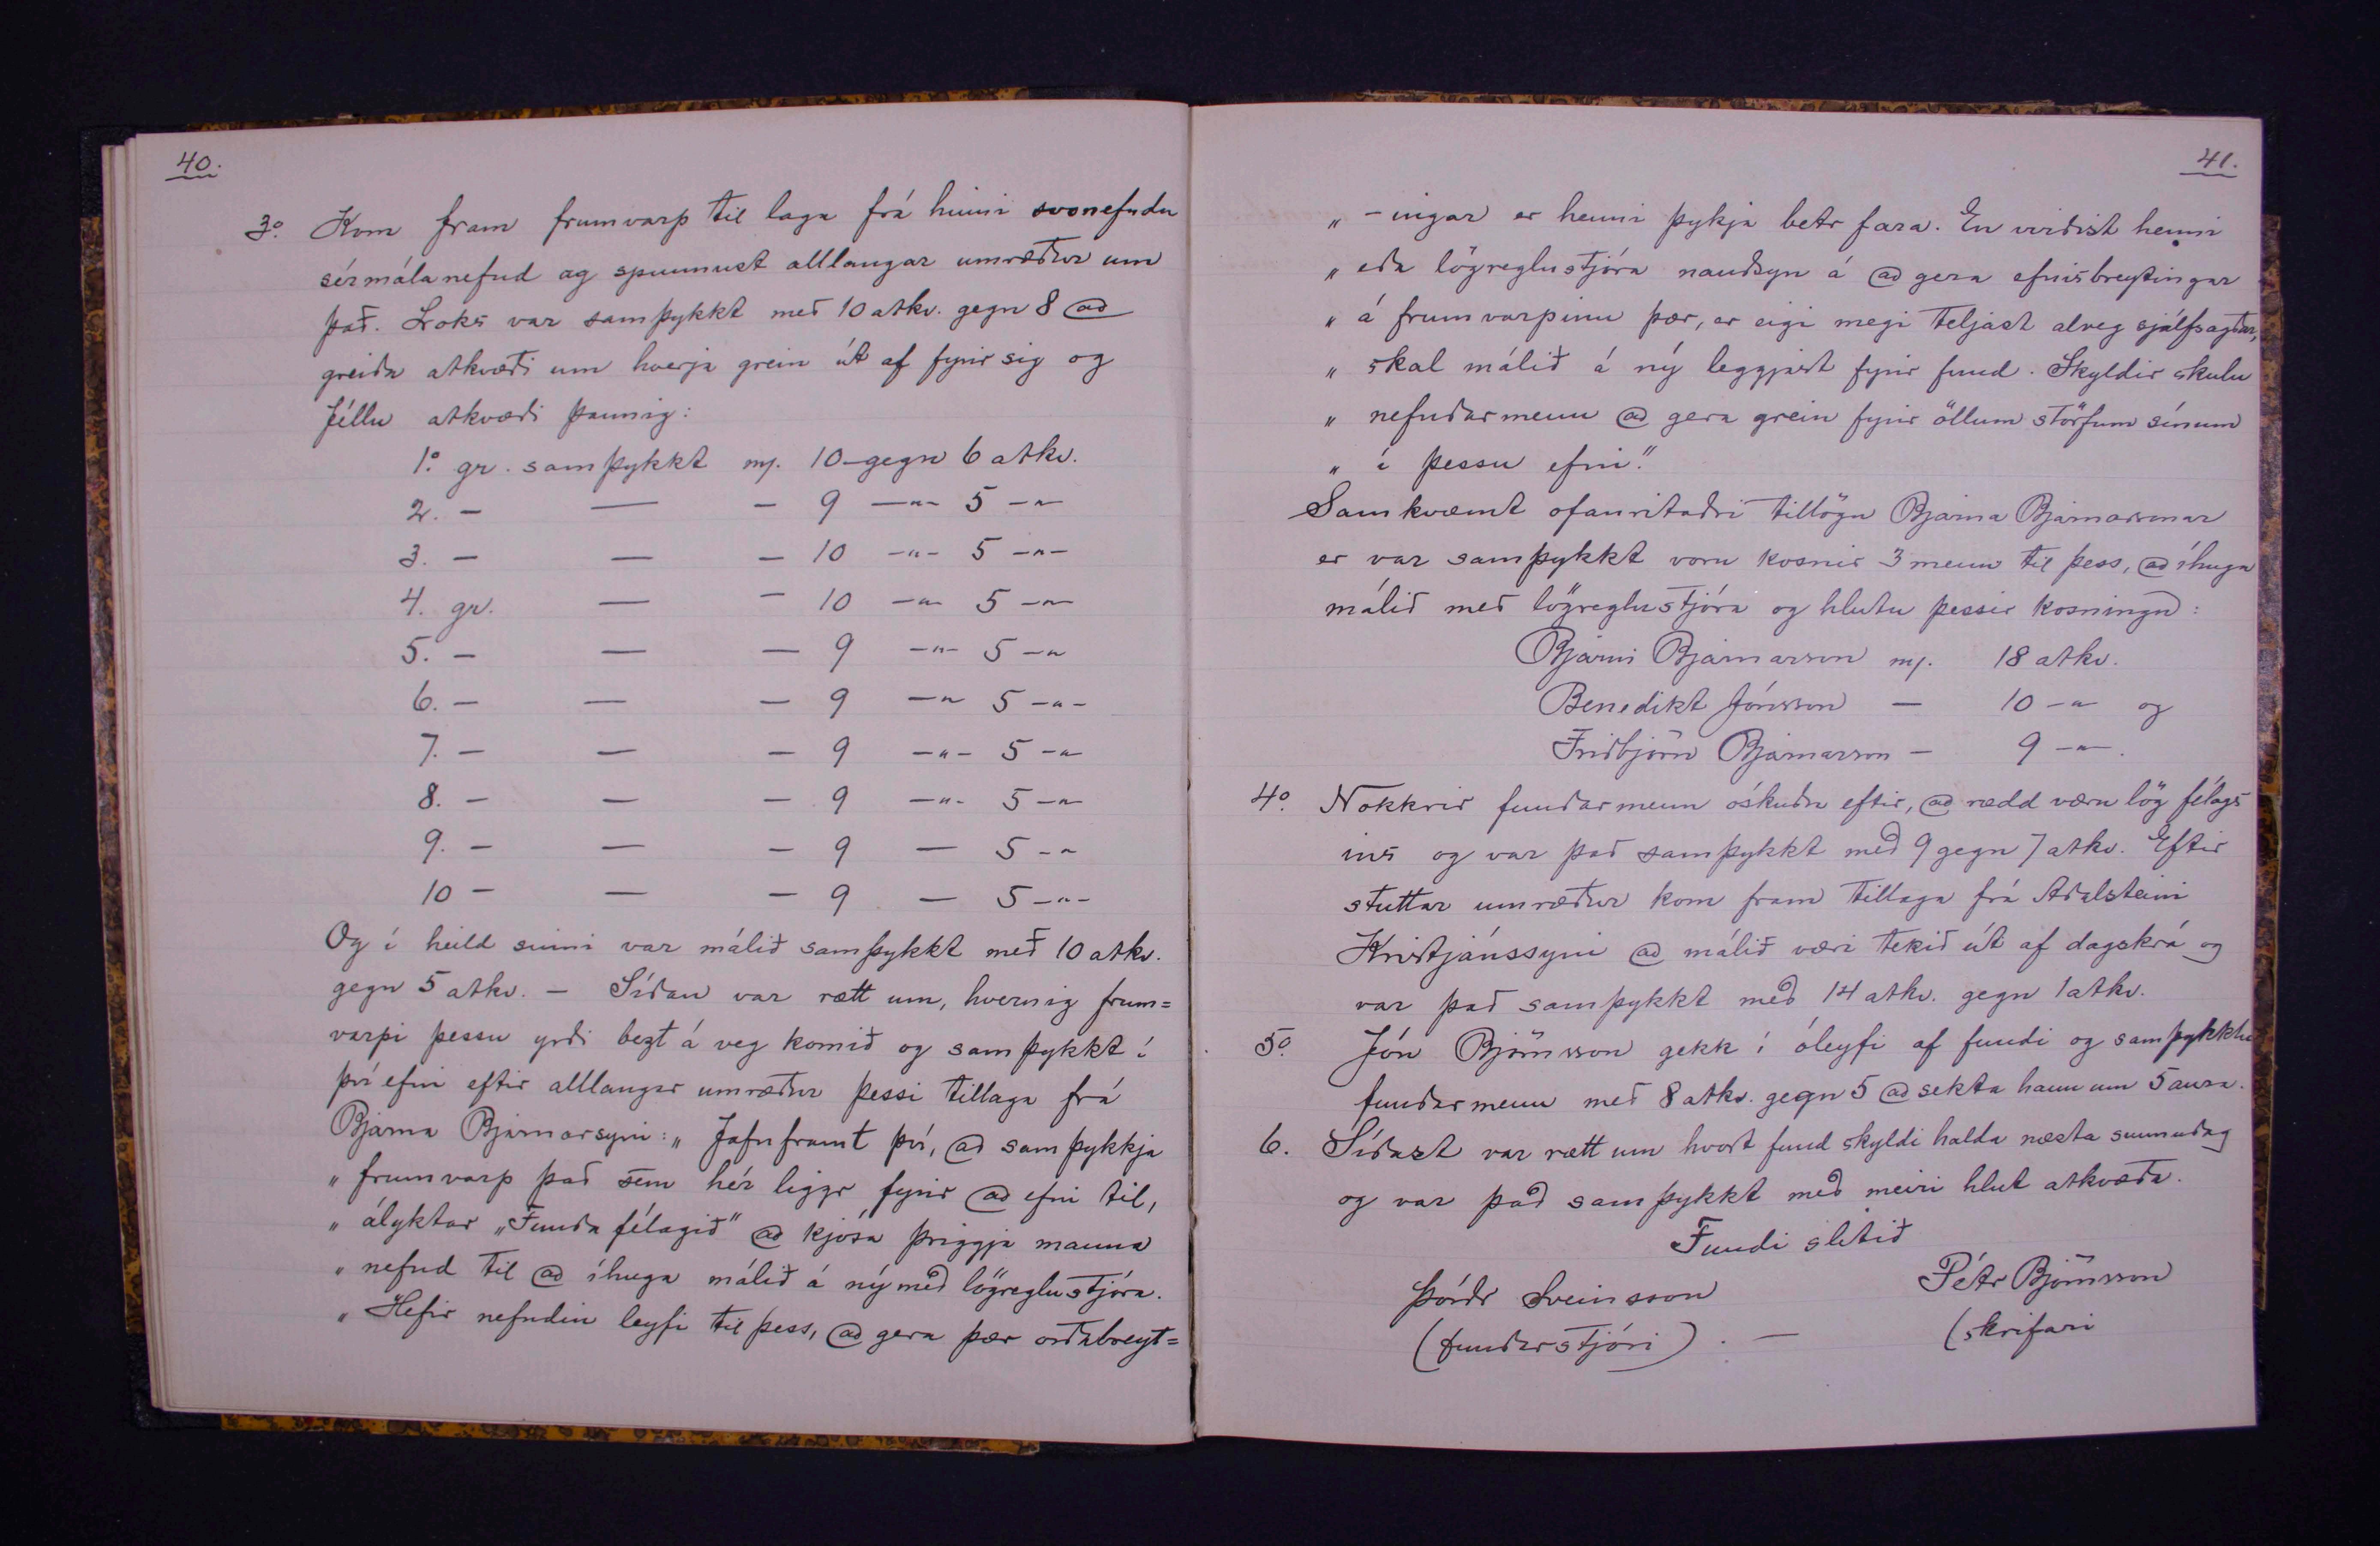 40.
3o. Kom fram frumvarp til laga frá hinni svonefndu
sérmálanefnd og spunnust alllangar umræður um
það. Loks var samþykkt með 10 atkv. gegn 8 að
greiða atkvæði um hverja grein út af fyrir sig og
féllu atkvæði þannig:
1o. gr. samþykkt m/. 10 gegn 6 atkv.
2. — — — 9 —"— 5 —"—
3. — — — 10 —"— 5 —"—
4. gr. — — 10 —"— 5 —"—
5. — — — 9 —"— 5 —"—
6. — — — 9 —"— 5 —"—
7. — — — 9 —"— 5 —"—
8. — — — 9 —"— 5 —"—
9. — — — 9 — 5 —"—
10 — — — 9 — 5 —"—
Og í heild sinni var málið samþykkt með 10 atkv.
gegn 5 atkv. — Síðan var rætt um, hvernig frum=
varpi þessu yrði bezt á veg komið og samþykkt í
því efni eftir alllangar umræður þessi tillaga frá
Bjarna Bjarnarsyni: „Jafnframt því, að samþykkja
„ frumvarp það sem hér liggr fyrir að efni til,
„ ályktar „Fundafélagið" að kjósa þriggja manna
„ nefnd til að íhuga málið á ný með lögreglustjóra.
„ Hefir nefndin leyfi til þess, að gera þær orðabreyt=
41.
„ -ingar er henni þykja betr fara. En virðist henni
„ eða lögreglustjóra nauðsyn á að gera efnisbreytingar
„ á frumvarpinu þær, er eigi megi teljast alveg sjálfsagðar,
„ skal málið á ný leggjast fyrir fund. Skyldir skulu
„ nefndarmenn að gera grein fyrir öllum störfum sínum
„ í þessu efni."
Samkvæmt ofanritaðri tillögu Bjarna Bjarnarsonar
er var samþykkt voru kosnir 3 menn til þess, að íhuga
málið með lögreglustjóra og hlutu þessir kosningu:
Bjarni Bjarnarson m/. 18 atkv.
Benedikt Jónsson — 10 —"— og
Friðbjörn Bjarnarson — 9 —"—.
4o. Nokkrir fundarmenn óskuðu eftir, að rædd væru lög félags
ins og var það samþykkt með 9 gegn 7 atkv. Eftir
stuttar umræður kom fram tillaga frá Aðalsteini
Kristjánssyni að málið væri tekið út af dagskrá og
var það samþykkt með 14 atkv. gegn 1 atkv.
5o. Jón Björnsson gekk í óleyfi af fundi og samþykktu
fundarmenn með 8 atkv. gegn 5 að sekta hann um 5 aura.
6. Síðast var rætt um hvort fund skyldi halda næsta sunnudag
og var það samþykkt með meiri hlut atkvæða.
Fundi slitið
Þórðr Sveinsson Pétr Björnsson
(fundarstjóri) . — (skrifari